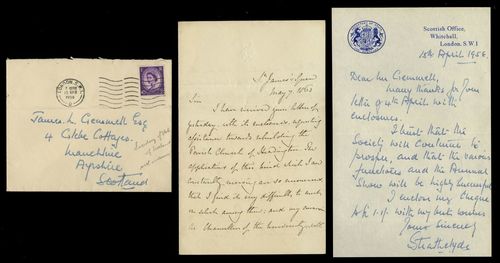 LONDON. S.W.1
1958
James L. Gemmell Esq
4 Glebe Cottages
Mauchline
Ayrshire
Scotland
Secretary of State
St James's Square
May 7. 1863
Sir
I have received your letter of
yesterday, with its enclosure, requesting
assistance towards rebuilding the
Parish Church of
applications of this kind which I am
constantly receiving are so numerous
that I find it very difficult to
on which among them; and my
as Chancellor of the University will
Scottish Office,
Whitehall,
London. S.W.1
15th April 1958.
Dear Mr Gemmell,
Many thanks for your
letter of 4th April with
enclosures.
I trust that the
Society will continue to
prosper, and that the various
functions and the Annual
Show will be highly successful.
I enclose my cheque
with my best wishes
Yours sincerely
Strathclyde